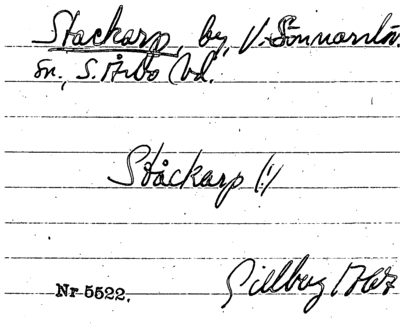 Stackarp, by, V. Sönnarslöv.
sn., S. Åsbo hd.
Ståckarp (!)
Gillberg 1767
Nr 5522.